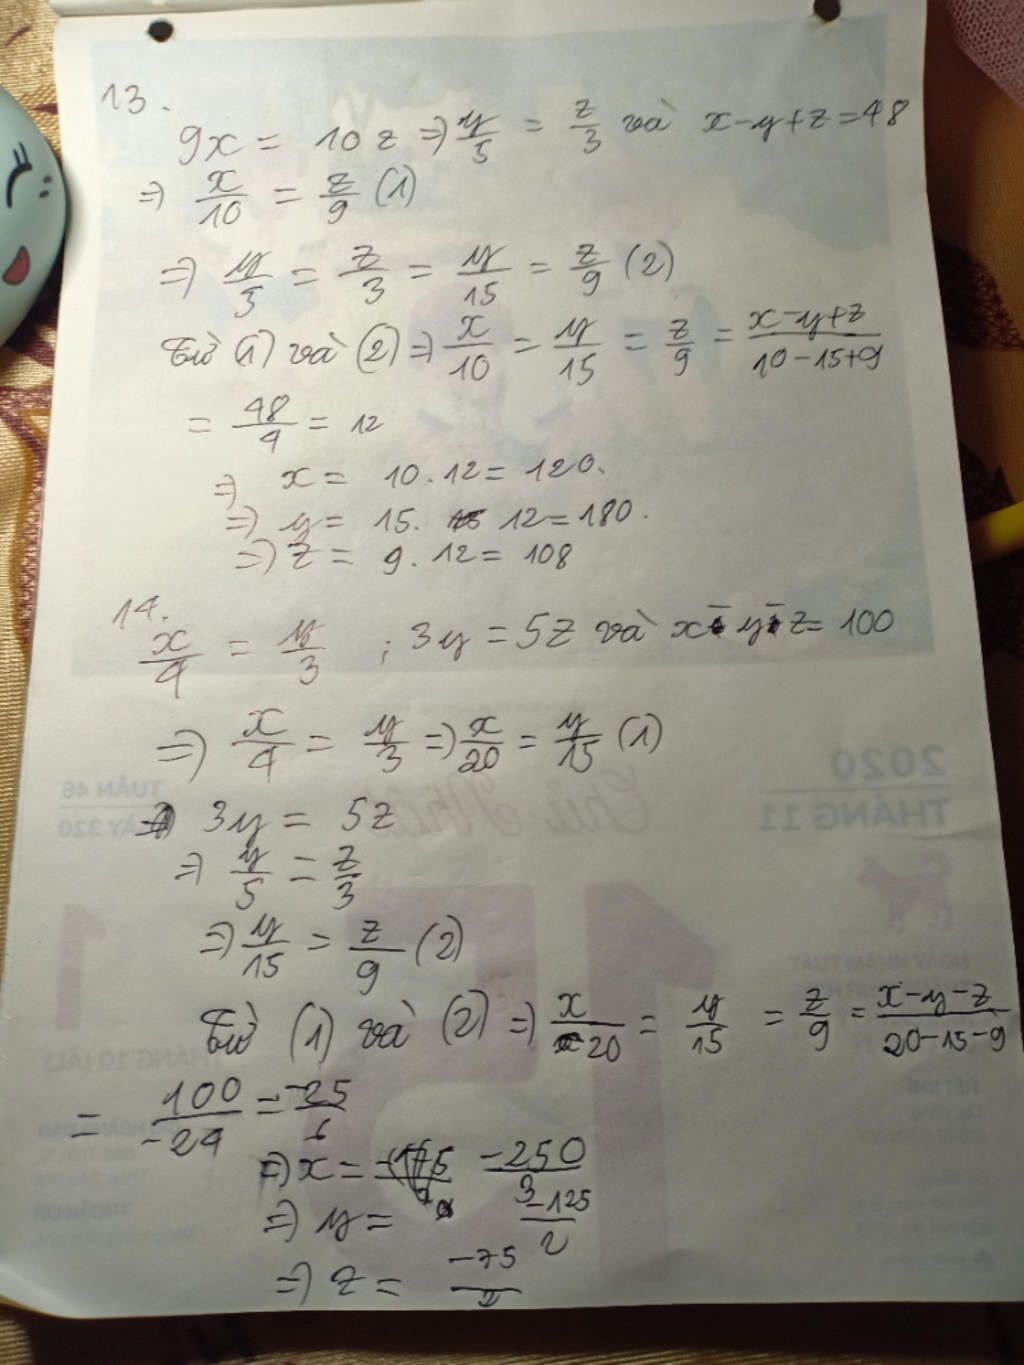 13.
9x = 10z => y/5 = z/3 và x-y+z=48
=> x/10 = z/9 (1)
=> y/5 = z/3 = y/15 = z/9 (2)
Từ (1) và (2) => x/10 = y/15 = z/9 = x-y+z/10-15+9
= 48/4 = 12
=> x = 10.12 = 120.
=> y = 15. 12 = 180.
=> z = 9.12 = 108
14.
x/4 = y/3 ; 3y = 5z và x-y-z = 100
=> x/4 = y/3 => x/20 = y/15 (1)
3y = 5z
=> y/5 = z/3
=> y/15 = z/9 (2)
Từ (1) và (2) => x/20 = y/15 = z/9 = x-y-z/20-15-9
= 100/-24 = -25/6
=> x = -250/3
=> y = -125/2
=> z = -75/2
2020
THÁNG 11
TUẦN 46
NGÀY 320
Chủ Nhật
15
1
NGÀY NHÂM TUẤT
THÁNG 10 (ÂL)